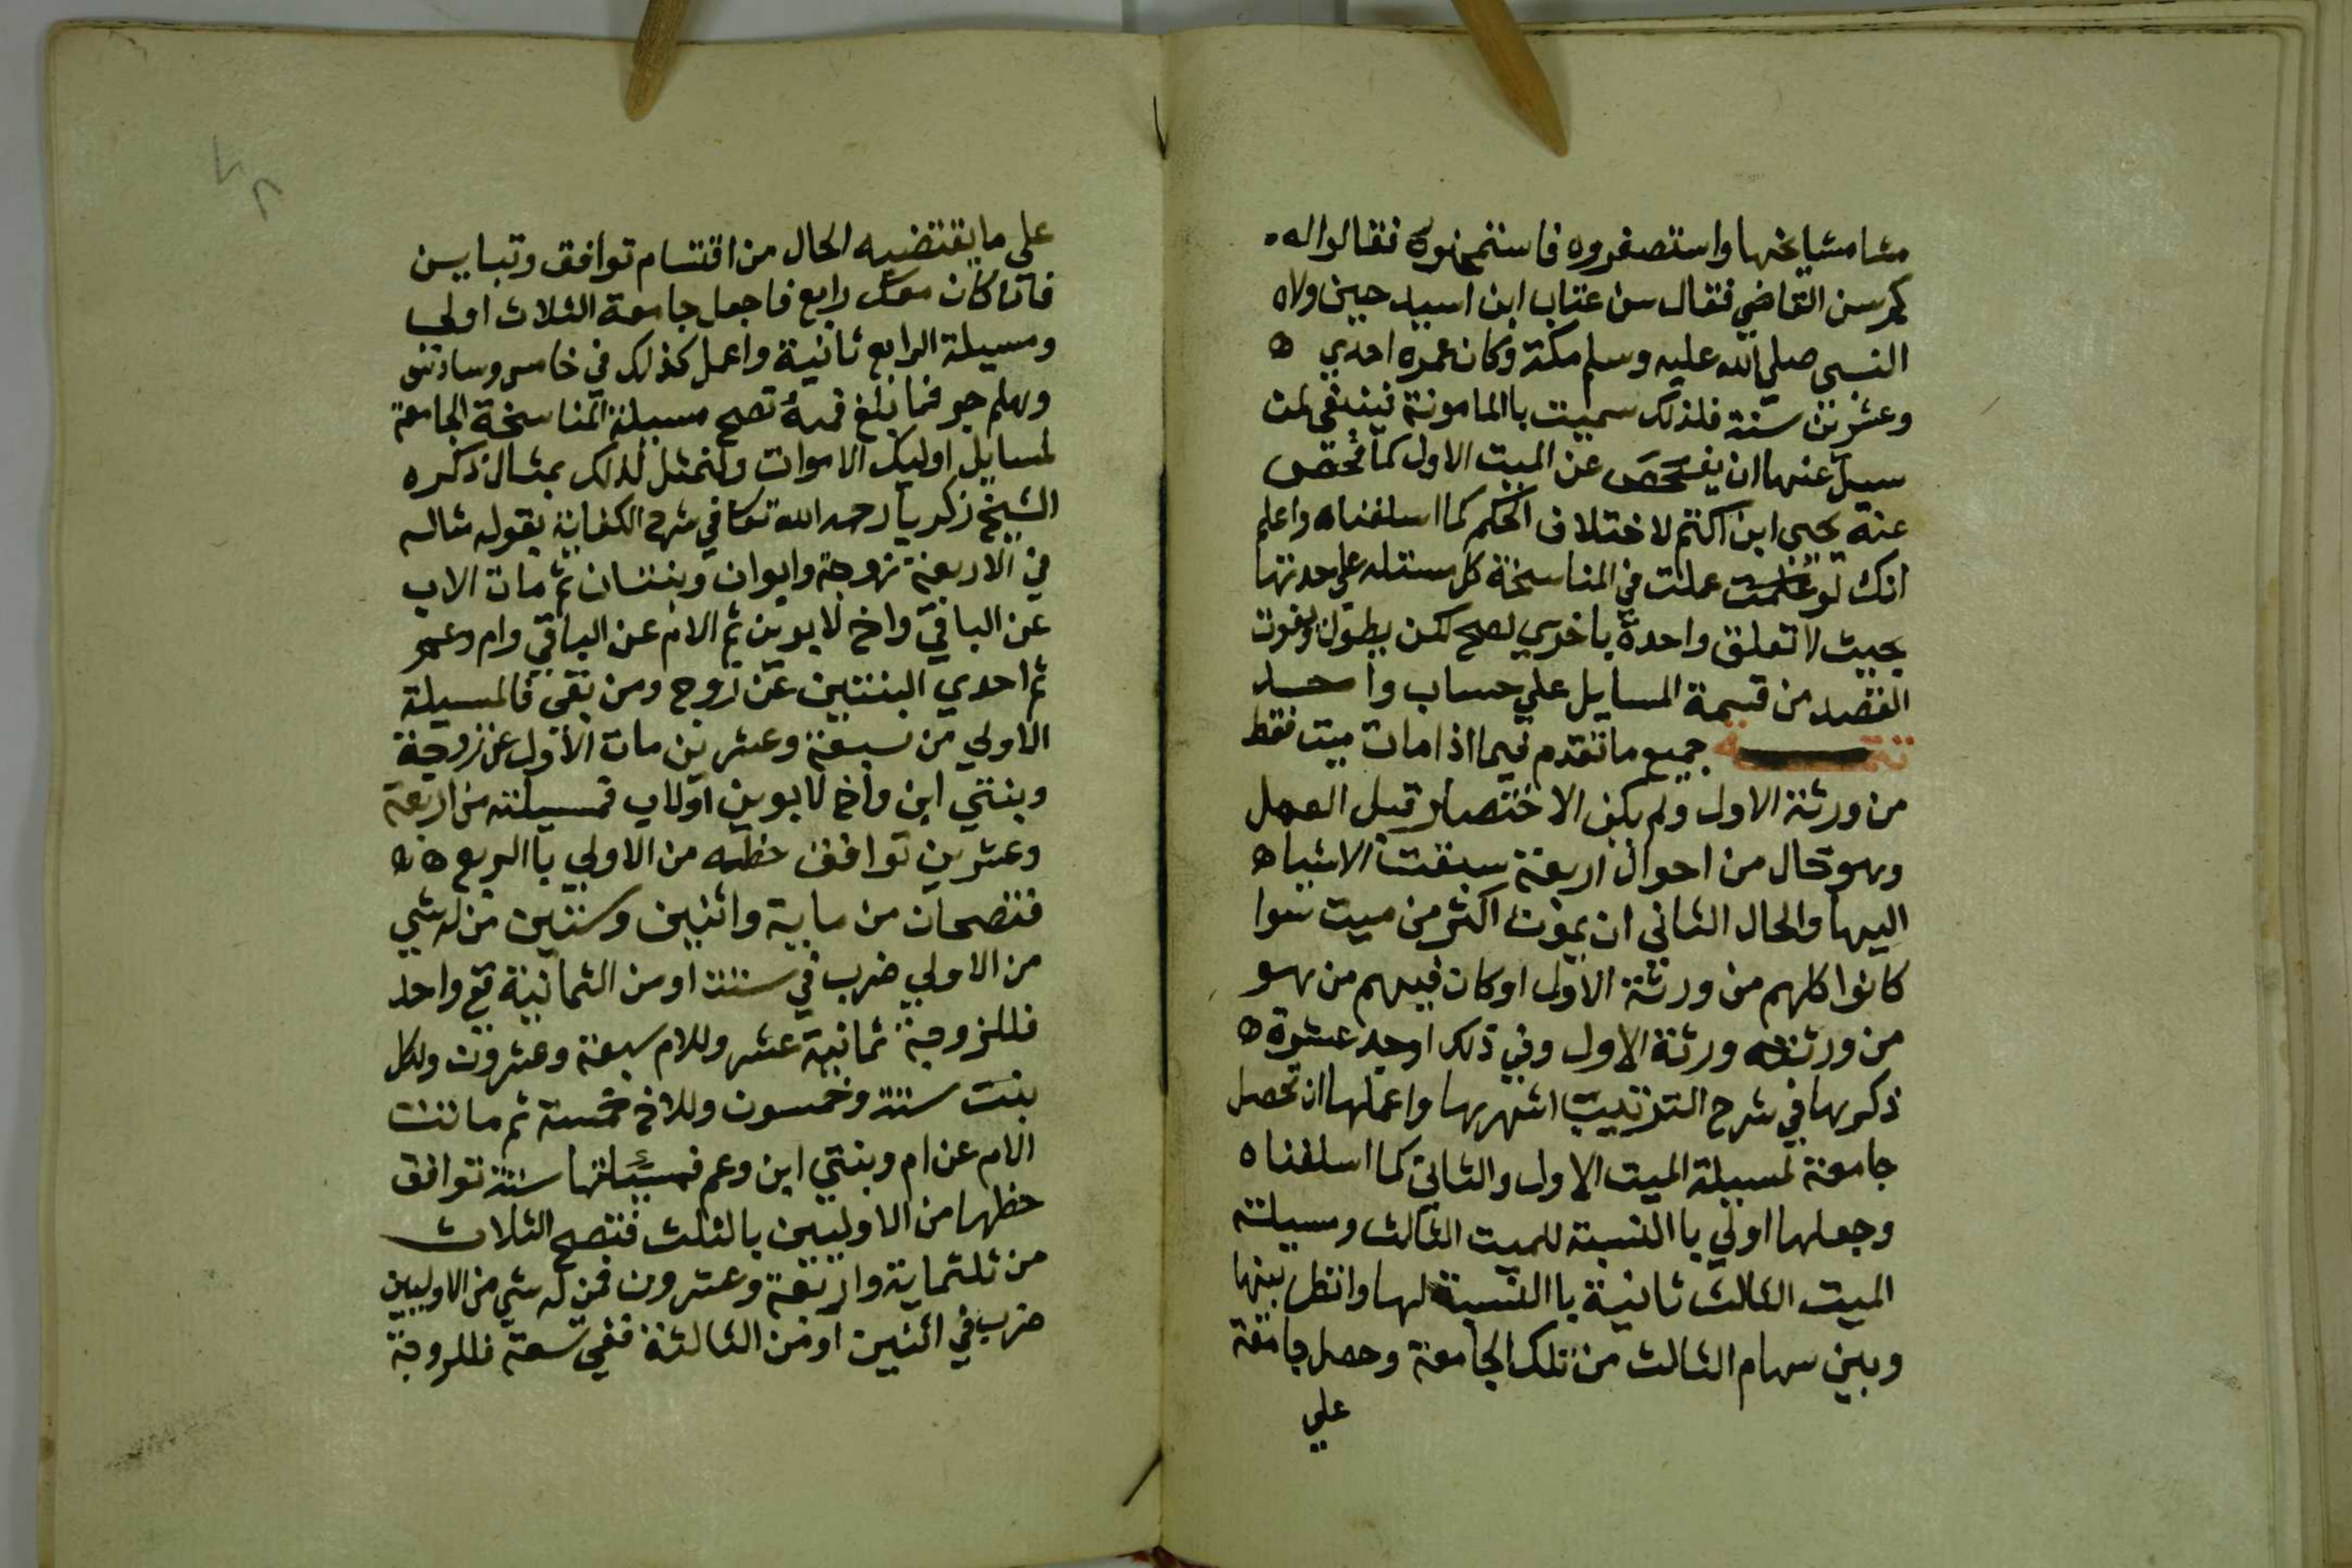 مشا مشايخها واستصغروه فاستمحنوه فقالوا له
كم سن القاضي فقال سن عتاب ابن اسيد حين ولاه
النبي صلي الله عليه وسلم مكة وكان عمره احدي
وعشرين سنة فلذلك سميت باالمامونة فينبغي لمن
سيل عنها ان يفحص عن الميت الاول كما فحص
عنه يحيي ابن اكثم لاختلاف الحكم كما اسلفناه واعلم
انك لو عملت في المناسخة كل مسئله علي حدتها
بحيث لا تعلق واحدة باخري لصح لكن يطول ويفوت
القصد من قسمة المسايل علي حساب واحد
تتمة جميع ما تقدم فيما اذا مات ميت فقط
من ورثة الاول ولم يكن الاختصار قبل العمل
وهو حال من احوال اربعة سبقت الاشباه
اليها والحال الثاني ان يموت اكثر من ميت سوا
كانوا كلهم من ورثة الاول او كان فيهم من هو
من ورثة ورثة الاول وفي ذلك اوجه عشرة
ذكرها في شرح الترتيب اشهرها واعملها ان تحصل
جامعة لمسيلة الميت الاول والثاني كما اسلفناه
وجعلها اولي باالنسبة للميت الثالث ومسيلة
الميت الثالث ثانية باالنسبة لها وانظر بينها
وبين سهام الثالث من تلك الجامعة وحصل جامعة
علي
علي ما يقتضيه الحال من اقتسام توافق وتباين
فان كان معك رابع فاجعل جامعة الثلاث اولي
ومسيلة الرابع ثانية واعمل كذلك في خامس وسادس
وهلم جر فما بلغ فمنه تصح مسيلة المناسخة الجامعة
لمسايل اوليك الاموات ولنمثل لذلك بمثال ذكره
الشيخ زكريا رحمه الله تعا في شرح الكفاية بقوله مثاله
في الاربعة زوجة وابوان وبنتان ثم مات الاب
عن الباقي واخ لابوين ثم الام عن الباقي وام وعم
ثم احدي البنتين عن زوج ومن بقي فالمسيلة
الاولي من سبعة وعشرين مات الاول عن زوجة
وبنتي ابن واخ لابوين اولاب فمسيلته من اربعة
وعشرين توافق حظه من الاولي باالربع
فتصحان من ماية واثنين وستين من له شي
من الاولي ضرب في ستة او من الثمانية فع واحد
فللزوجة ثمانية عشر وللام سبعة وعشرون ولكل
بنت ستة وخمسون وللاخ خمسة ثم ماتت
الام عن ام وبنتي ابن وعم فمسئلتها ستة توافق
حظها من الاوليين بالثلث فتصح الثلاث
من ثلثماية واربعة وعشرون فمن له شي من الاوليين
ضرب في اثنين او من الثالثة ففي تسعة فللزوجة